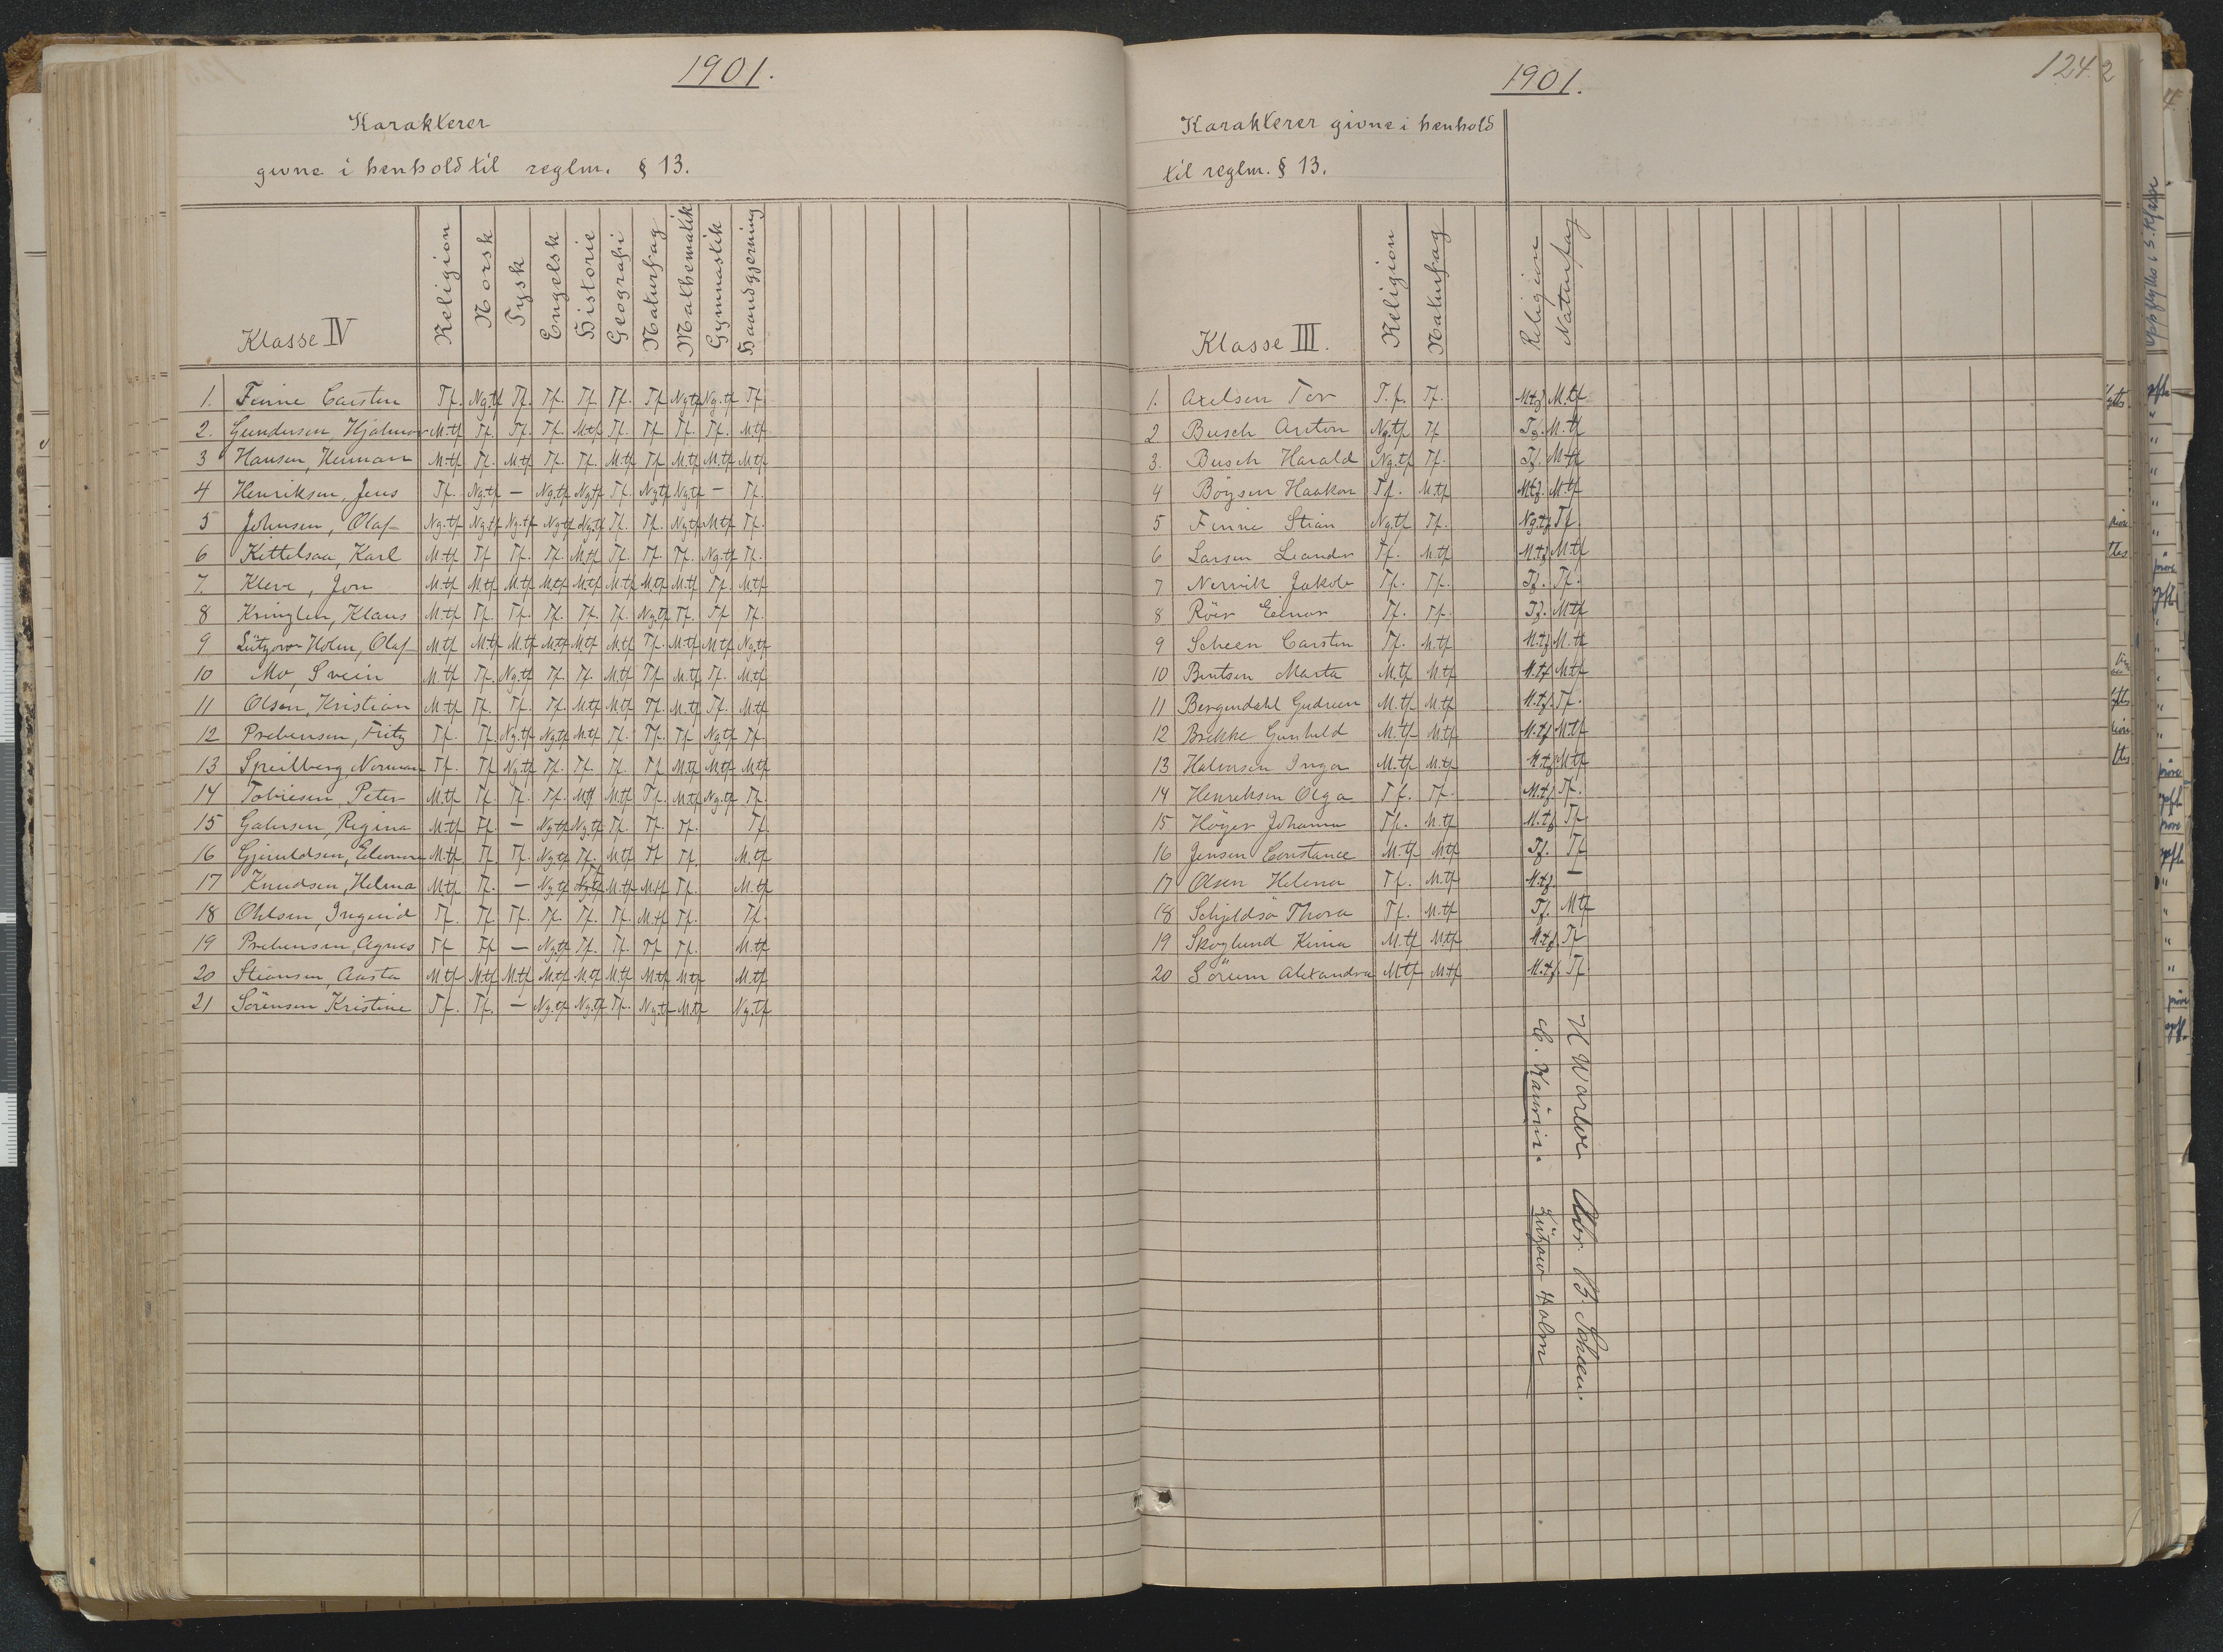 1901.
Karakterer
givne i henhold til reglm. § 13.
Klasse IV Religion Norsk Tysk Engelsk Historie Geografi Naturfag Mathematik Gymnastik Haandgjerning
1. Finne Carsten Tf. Ng.tf Tf. Tf. Tf. Tf. Tf Ng.tf Ng.tf Tf.
2. Gundersen, Hjalmar M.tf Tf. Tf. Tf. M.tf Tf. Tf Tf. Tf. M.tf
3 Hansen, Herman M.tf Tf. M.tf Tf. Tf. M.tf Tf M.tf M.tf M.tf
4 Henriksen, Jens Tf. Ng.tf — Ng.tf Ng.tf Tf. Ng.tf Ng.tf — Tf.
5 Johnsen, Olaf Ng.tf Ng.tf Ng.tf Ng.tf Ng.tf Tf. Tf. Ng.tf M.tf Tf.
6 Kittelsaa, Karl M.tf Tf Tf. Tf. M.tf Tf. Tf. Tf. Ng.tf Tf.
7. Kleve, Jon M.tf M.tf M.tf M.tf M.tf M.tf M.tf M.tf Tf. M.tf
8 Kringlen, Klaus M.tf Tf. Tf. Tf. Tf. Tf. Ng.tf Tf. Tf Tf.
9 Lützow-Holm, Olaf M.tf M.tf M.tf M.tf M.tf M.tf Tf. M.tf M.tf Ng.tf
10 Mo, Svein M.tf Tf. Ng.tf Tf. Tf. M.tf Tf M.tf Tf. M.tf
11 Olsen, Kristian M.tf Tf. Tf. Tf. M.tf M.tf Tf. M.tf Tf. M.tf
12 Prebensen, Fritz Tf. Tf. Ng.tf Ng.tf M.tf Tf. Tf. Tf Ng.tf Tf.
13 Speilberg, Norman Tf. Tf Ng.tf Tf. Tf. Tf. Tf M.tf M.tf M.tf
14 Tobiesen, Peter M.tf Tf. Tf. Tf. M.tf M.tf Tf. M.tf Ng.tf Tf.
15 Regina M.tf Tf. — Ng.tf Ng.tf Tf. Tf. Tf. Tf.
16 M.tf Tf. Tf. Ng.tf Tf. M.tf Tf Tf. M.tf
17 Knudsen, Helma M.tf Tf. — Ng.tf M.tf M.tf Tf. M.tf
18 Ohlsen, Ingrid Tf. Tf. Tf. Tf. Tf. Tf. M.tf Tf. Tf.
19 Prebensen, Agnes Tf Tf — Ng.tf Tf. Tf. Tf Tf. M.tf
20 Stiansen, Aasta M.tf M.tf M.tf M.tf M.tf M.tf M.tf M.tf M.tf
21 Sörensen Kristine Tf. Tf. — Ng.tf Ng.tf Tf. Ng.tf M.tf Ng.tf
1901.
124
Karakterer givne i henhold
til reglm. § 13.
Klasse III. Religion Naturfag Religion Naturfag
1. Axelsen Tor T.f. Tf. M.tf M.tf
2 Busch Anton Ng.tf Tf Tf. M.tf
3. Busch Harald Ng.tf Tf. Tf. M.tf
4 Boysen Haakon Tf. M.tf M.tf. M.tf
5 Finne Stian Ng.tf Tf. Ng.tf Tf.
6 Larsen Leander Tf. M.tf M.tf M.tf
7 Nervik Jakob Tf. Tf. Tf. Tf.
8 Röer Einar Tf. Tf. Tf. M.tf
9 Scheen Carsten Tf. M.tf M.tf M.tf
10 Berntsen Marta M.tf M.tf M.tf M.tf
11 Bergendahl Gudrun M.tf M.tf M.tf. Tf.
12 Brekke Gunhild M.tf M.tf M.tf M.tf
13 Halvorsen Inga M.tf M.tf M.tf M.tf
14 Henriksen Olga Tf. Tf. M.tf Tf.
15 Höyer Johanna Tf. M.tf M.tf Tf.
16 Jensen Constance M.tf M.tf Tf. Tf
17 Olsen Helena Tf. M.tf M.tf. —
18 Schjeldsö Thora Tf. M.tf Tf. M.tf
19 Skoglund Kima M.tf M.tf M.tf. Tf
20 Sörum Alexandra M.tf M.tf M.tf. Tf
Abr. B. Scheen.
Lützow-Holm